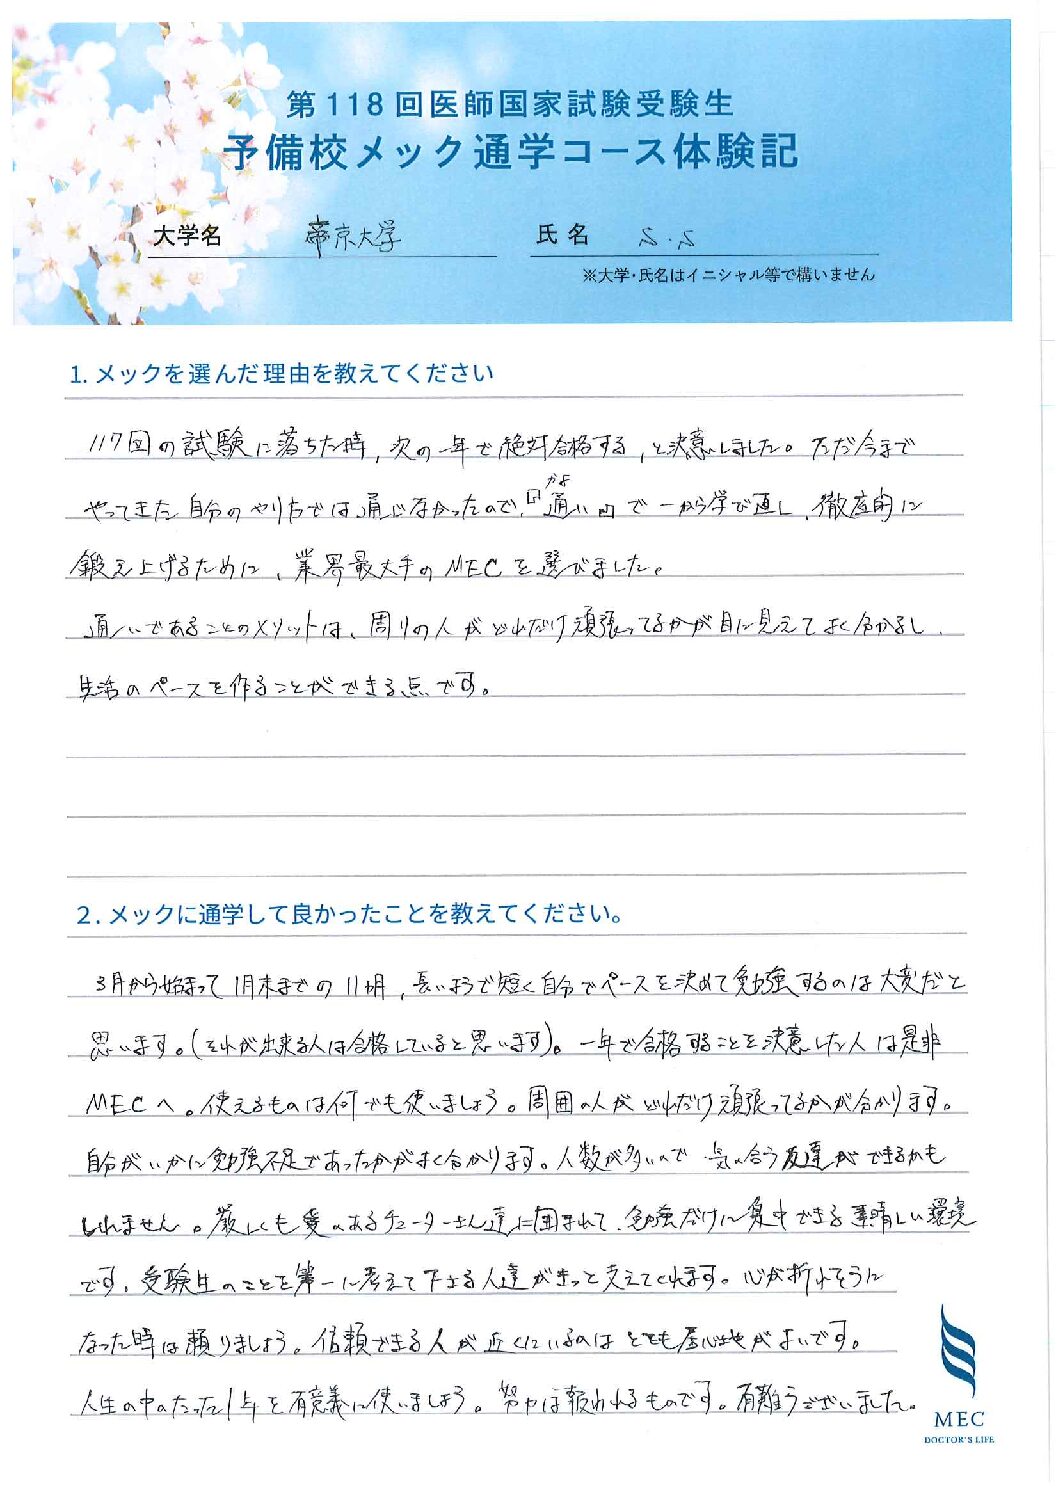 第118回医師国家試験受験生
予備校メック通学コース体験記
大学名 帝京大学 氏名 S.S
※大学・氏名はイニシャル等で構いません
1. メックを選んだ理由を教えてください
117回の試験に落ちた時、次の一年で絶対合格する、と決意しました。ただ今まで
やってきた自分のやり方では通じなかったので、『通い』で一から学び直し、徹底的に
かよ
鍛え上げるために、業界最大手のMECを選びました。
通いであることのメリットは、周りの人がどれだけ頑張ってるかが目に見えてよく分かるし、
生活のペースを作ることができる点です。
2. メックに通学して良かったことを教えてください。
3月から始まって1月末までの11ヶ月、長いようで短く自分でペースを決めて勉強するのは大変だと
思います。(それが出来る人は合格していると思います)。一年で合格することを決意した人は是非
MECへ。使えるものは何でも使いましょう。周囲の人がどれだけ頑張ってるかが分かります。
自分がいかに勉強不足であったかがよく分かります。人数が多いので気の合う友達ができるかも
しれません。厳しくも愛のあるチューターさん達に囲まれて、勉強だけに集中できる素晴しい環境
です。受験生のことを第一に考えて下さる人達がきっと支えてくれます。心が折れそうに
なった時は頼りましょう。信頼できる人が近くにいるのはとても居心地がよいです。
人生の中のたった1年を有意義に使いましょう。努力は報われるものです。有難うございました。
MEC
DOCTOR'S LIFE